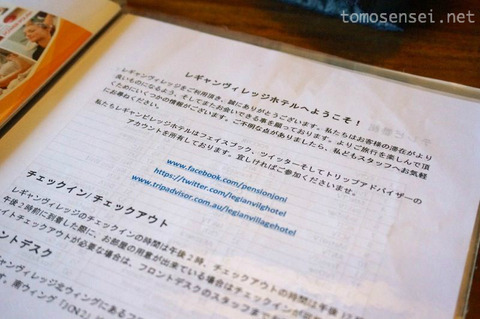 tomosensei.net
レギャンヴィレッジホテルへようこそ！
レギャンヴィレッジをご利用頂き、誠にありがとうございます。私たちはお客様の滞在がより
良いものになるよう、そしてまたお会いできる事を願っております。よりご旅行を楽しんで頂
くためにいくつかの情報がございます。ご不明な点がありましたら、私どもスタッフへお気軽
にお尋ねください。
私たちレギャンビレッジホテルはフェイスブック、ツイッターそしてトリップアドバイザーの
アカウントを所有しております。宜しければご参加くださいませ。
www.facebook.com/pensionjoni
https://twitter.com/legianvilghotel
www.tripadvisor.com.au/legianvillagehotel
チェックイン/チェックアウト
レギャンヴィレッジのチェックインの時間は午後2時、チェックアウトの時間は午後12
午後2時前に到着した際に、お部屋の用意が出来ている場合はチェックインが
イトチェックアウトが必要な場合は、フロントデスクのスタッフまで
ントデスク
ギャンヴィレッジ北ウィングにあるフ
す。南ウィング